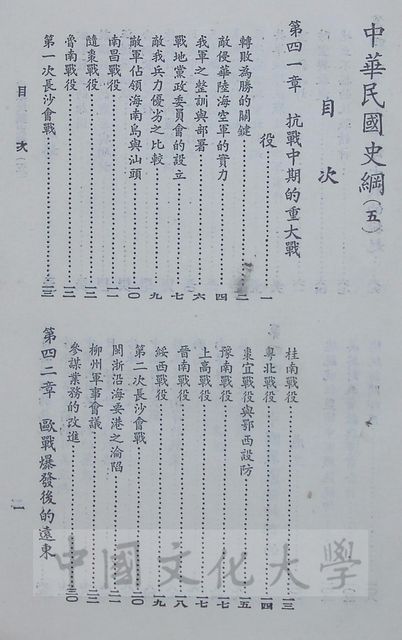 中華民國史綱(五)
目次
第四一章 抗戰中期的重大戰
役……一
轉敗為勝的關鍵……二
敵侵華陸海空軍的實力……四
我軍之整訓與部署……六
戰地黨政委員會的設立……七
敵我兵力優劣之比較……九
敵軍佔領海南島與汕頭……一〇
南昌戰役……一一
隨棗戰役……一二
魯南戰役……一二
第一次長沙會戰……一三
目次
桂南戰役……一三
粵北戰役……一四
棗宜戰役與鄂西設防……一五
豫南戰役……一七
上高戰役……一七
晉南戰役……一八
綏西戰役……一九
第二次長沙會戰……二〇
閩浙沿海要港之淪陷……二一
柳州軍事會議……二二
參謀業務的改進……三〇
第四二章 歐戰爆發後的遠東
一
中國文化大學